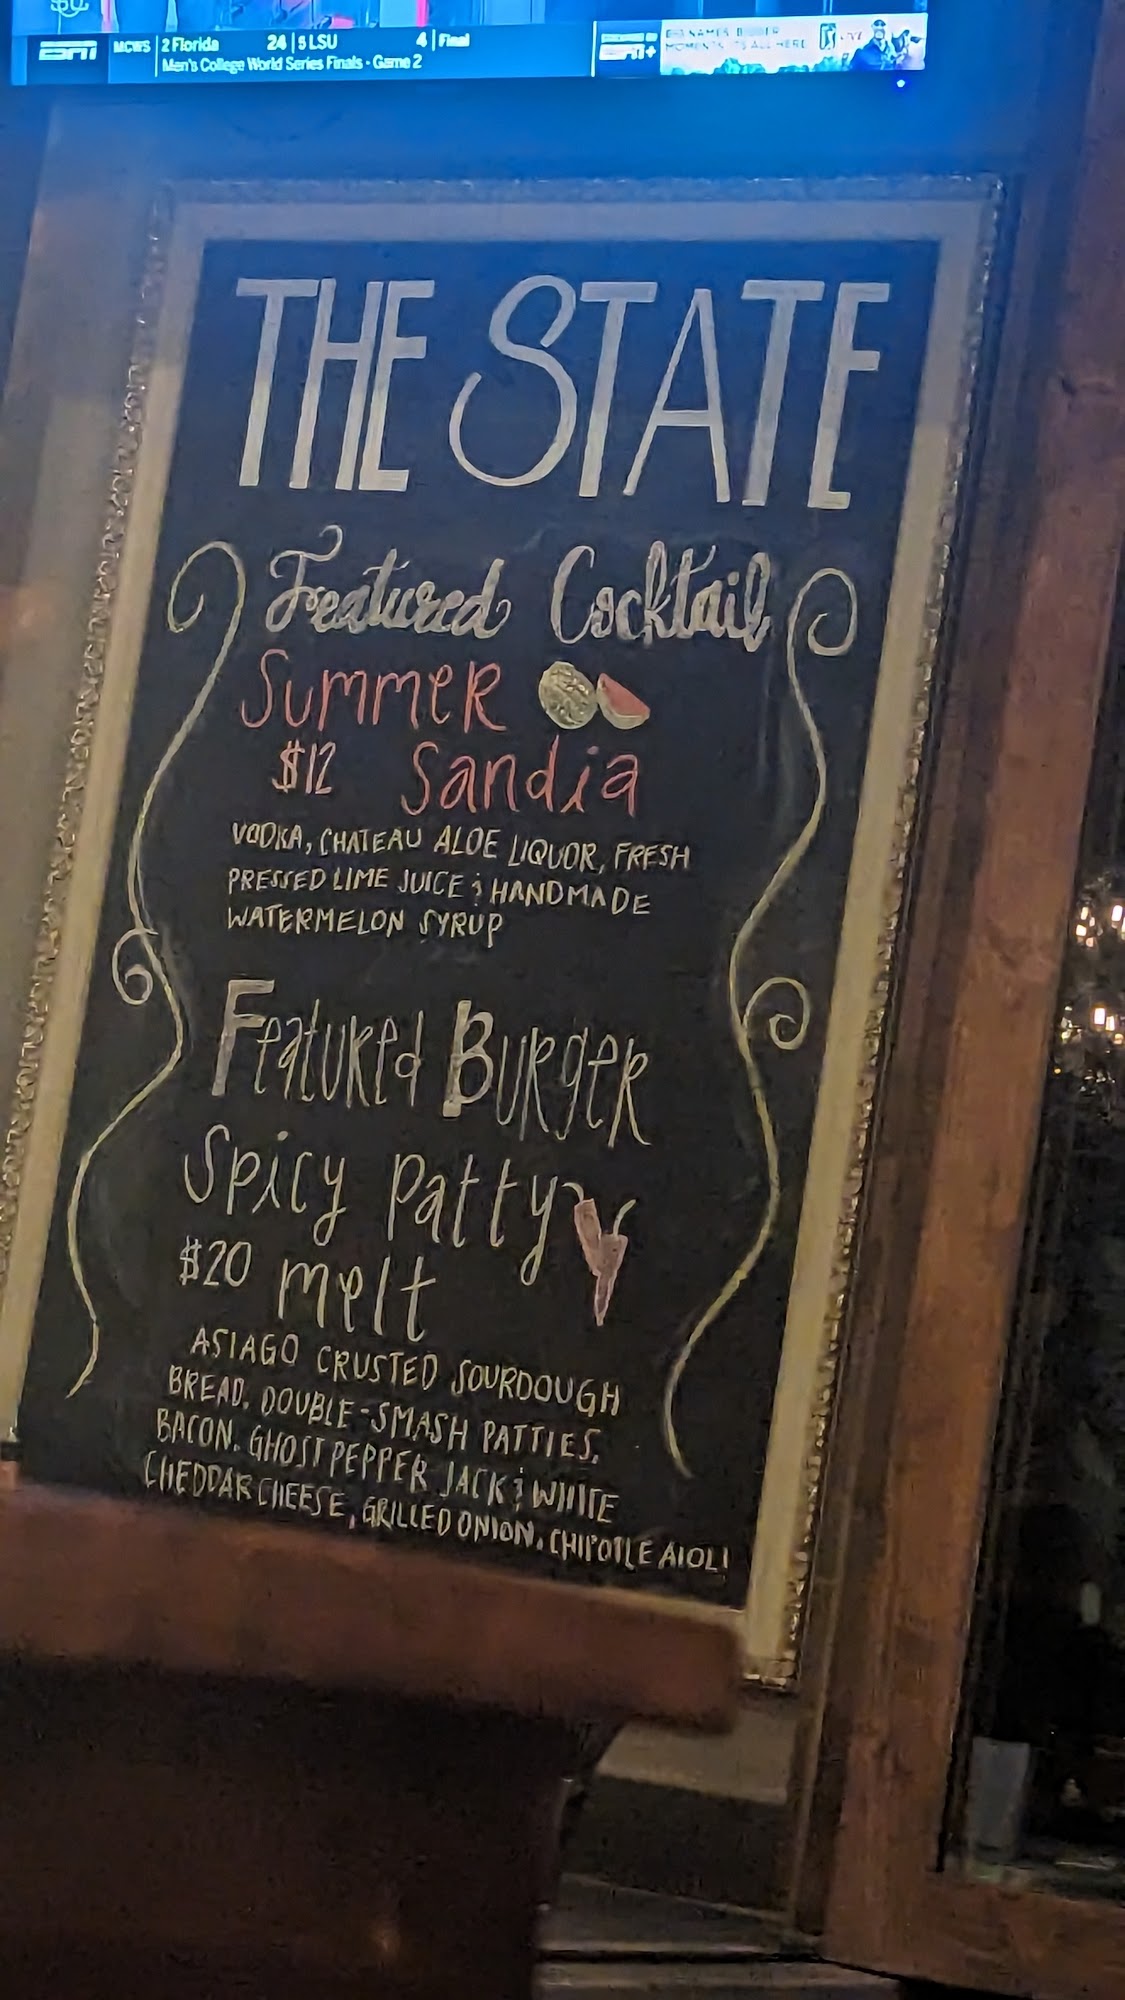 ESPN
MCWS
2 Florida 24
5 LSU 4
Final
Men's College World Series Finals - Game 2
STREAMING ON
ESPN+
BIG NAMES. BIGGER
MOMENTS. IT'S ALL HERE.
LIVE
THE STATE
Featured Cocktail
Summer
$12 Sandia
VODKA, CHATEAU ALOE LIQUOR, FRESH
PRESSED LIME JUICE & HANDMADE
WATERMELON SYRUP
Featured Burger
Spicy Patty
$20 Melt
ASIAGO CRUSTED SOURDOUGH
BREAD, DOUBLE-SMASH PATTIES,
BACON, GHOST PEPPER JACK & WHITE
CHEDDAR CHEESE, GRILLED ONION, CHIPOTLE AIOLI